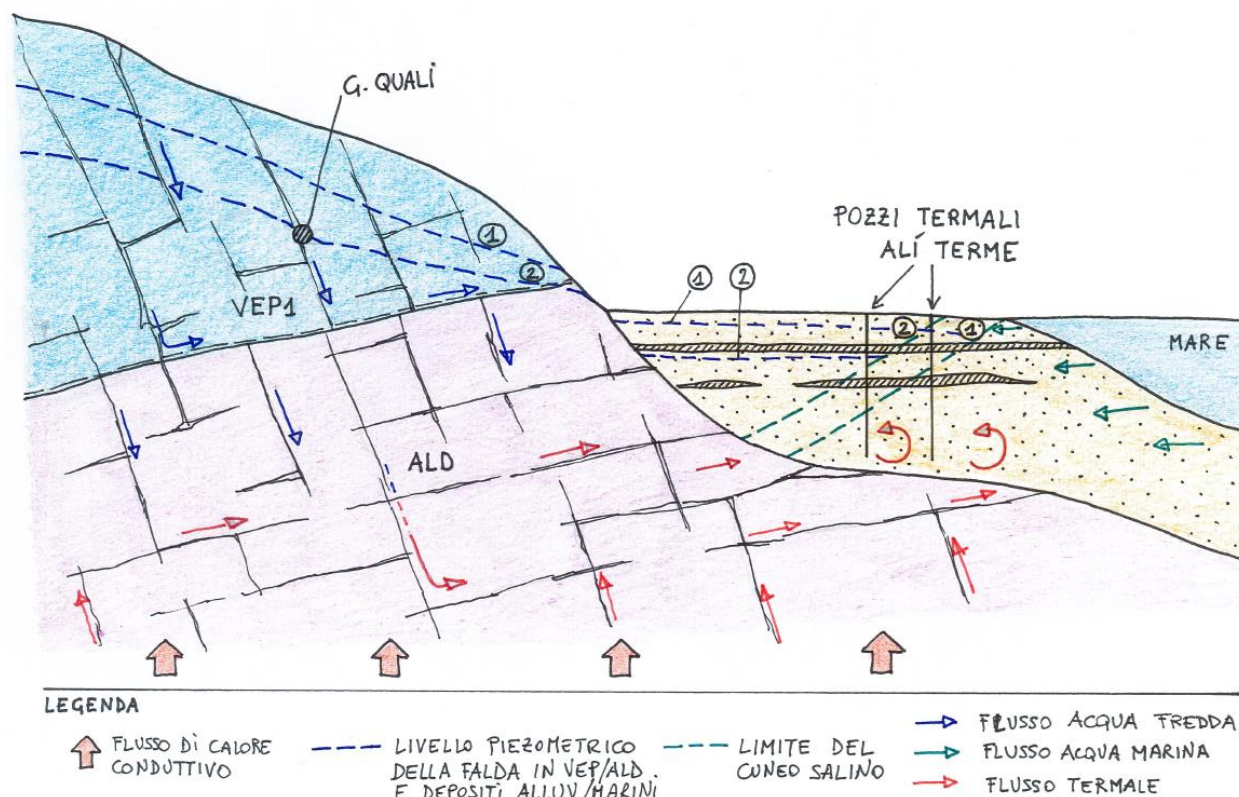 G. QUALI
POZZI TERMALI
ALÍ TERME
① ② 
①
②
② ①
MARE
VEP1
ALD
LEGENDA
FLUSSO DI CALORE
CONDUTTIVO
LIVELLO PIEZOMETRICO
DELLA FALDA IN VEP/ALD
E DEPOSITI ALLUV/MARINI
LIMITE DEL
CUNEO SALINO
FLUSSO ACQUA FREDDA
FLUSSO ACQUA MARINA
FLUSSO TERMALE